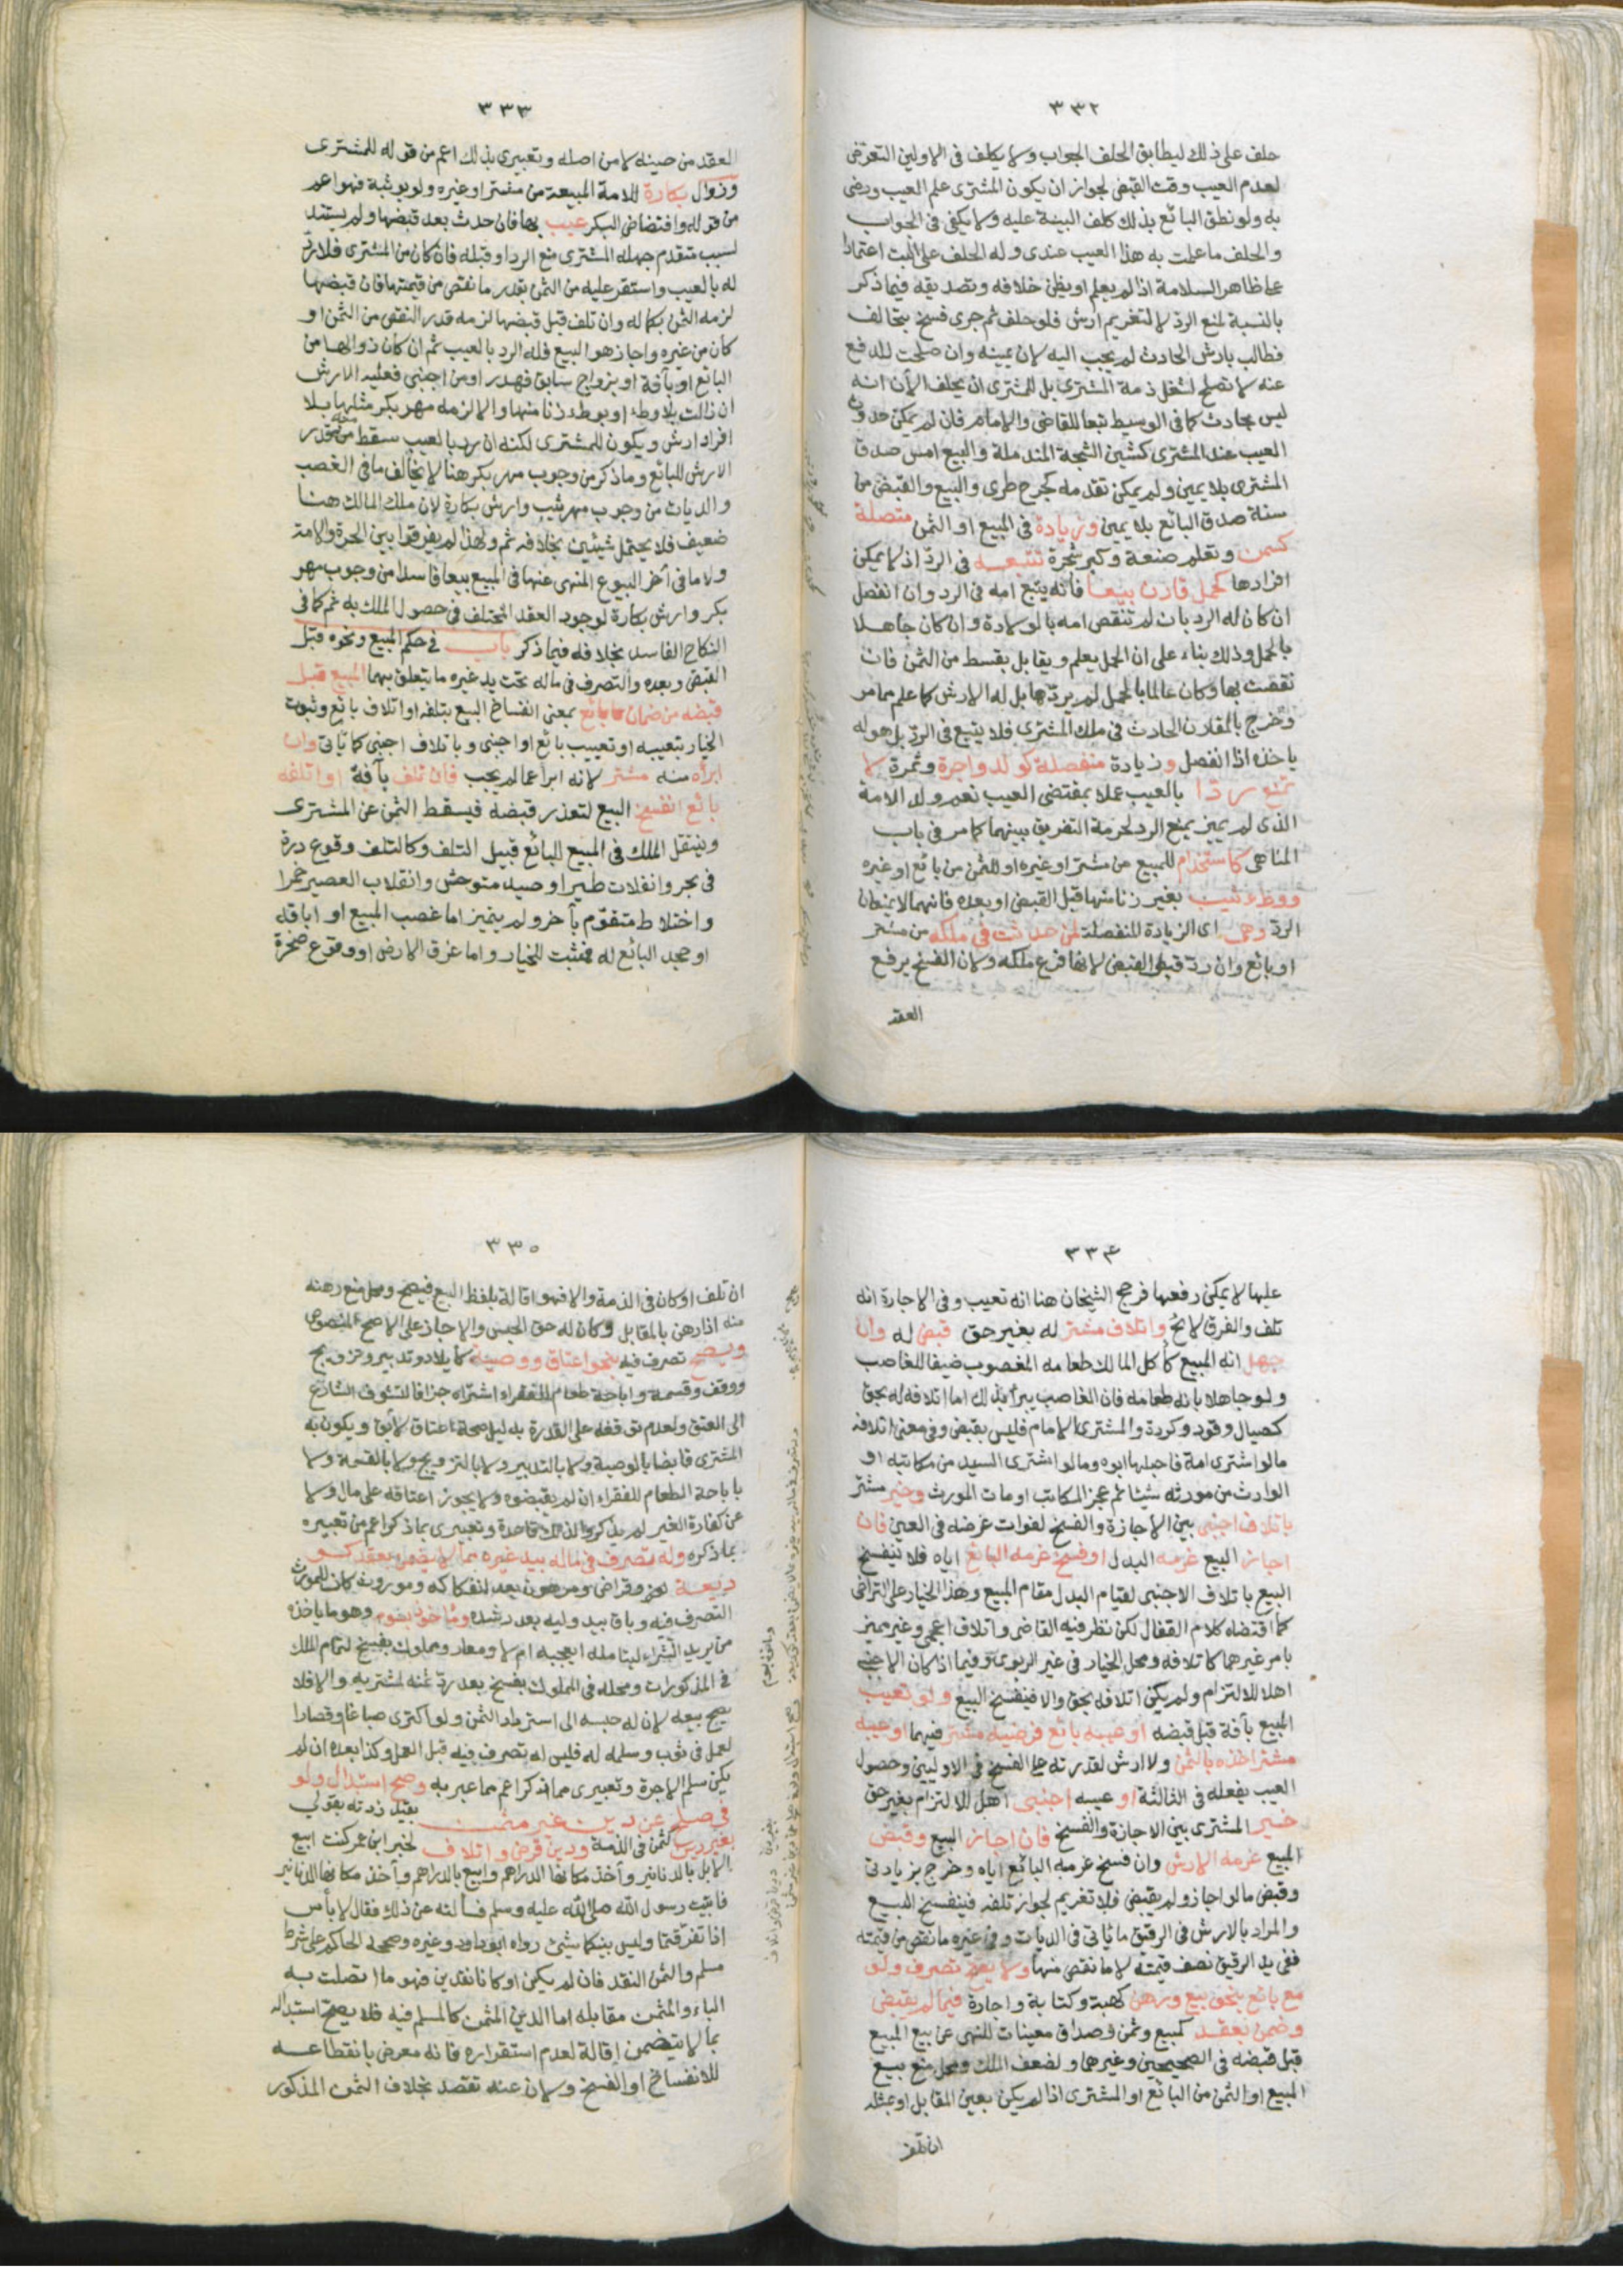 ٣٣٢
حلف على ذلك ليطابق الحلف الجواب ولا يكلف في الاولين التعرض
لعدم العيب وقت القبض لجواز ان يكون المشترى علم العيب ورضى
به ولو نطق البائع بذلك كلف البينة عليه ولا يكفى في الجواب
والحلف ما علمت به هذا العيب عندى وله الحلف على البت اعتمادا
على ظاهر السلامة اذا لم يعلم او يظن خلافه وتصديقه فيما ذكر
بالنسبة لمنع الرد لا لتغريم ارش فلو حلف ثم جرى فسخ بتحالف
فطالب بارش الحادث لم يجب اليه لان يمينه وان صلحت للدفع
عنه لا تصلح لشغل ذمة المشترى بل للمشترى ان يحلف الآن انه
ليس بحادث كما في الوسيط تبعا للقاضى والامام فان لم يمكن حدوث
العيب عند المشترى كشين الشجة المندملة والبيع امس صدق
المشترى بلا يمين ولم يمكن تقدمه كجرح طرى والبيع والقبض من
سنة صدق البائع بلا يمين وزيادة في المبيع او الثمن متصلة
كسمن وتعلم صنعة وكبر شجرة تتبعه في الرد اذ لا يمكن
افرادها كحمل قارن بيعا فانه يتبع امه في الرد وان انفصل
ان كان له الرد بان لم تنقص امه بالولادة وان كان جاهلا
بالحمل وذلك بناء على ان الحمل يعلم ويقابل بقسط من الثمن فان
نقصت بها وكان عالما بالحمل لم يردها بل له الارش كما علم مما مر
وخرج بالمقارن الحادث في ملك المشترى فلا يتبع في الرد بل هو له
ياخذه اذا انفصل وزيادة منفصلة كولد واجرة وثمرة لا
تمنع ردا بالعيب عملا بمقتضى العيب نعم ولد الامة
الذى لم يميز يمنع الرد لحرمة التفريق بينهما كما مر في باب
المناهى كاستخدام للمبيع من مشتر او غيره او للثمن من بائع او غيره
ووطء ثيب بغير زنا منها قبل القبض او بعده فانهما لا يمنعان
الرد وهى اى الزيادة المنفصلة لمن حدثت في ملكه من مشتر
او بائع وان رد قبل القبض لانها فرع ملكه ولان الفسخ يرفع
العقد
٣٣٣
العقد من حينه لا من اصله وتعبيرى بذلك اعم من قوله للمشترى
وزوال بكارة للامة المبيعة من مشتر او غيره ولو بوثبة فهو اعم
من قوله وافتضاض البكر عيب بها فان حدث بعد قبضها ولم يستند
لسبب متقدم جهله المشترى منع الرد او قبله فان كان من المشترى فلا رد
له بالعيب واستقر عليه من الثمن بقدر ما نقص من قيمتها فان قبضها
لزمه الثمن بكماله وان تلف قبل قبضها لزمه قدر النقص من الثمن او
كان من غيره واجاز هو البيع فله الرد بالعيب ثم ان كان زوالها من
البائع او بآفة او بزواج سابق فهدر او من اجنبى فعليه الارش
ان زالت بلا وطء او بوطء زنا منها والا لزمه مهر بكر مثلها بلا
افراد ارش ويكون للمشترى لكنه ان رد بالعيب سقط منه قدر
الارش للبائع وما ذكر من وجوب مهر بكر هنا لا يخالف ما في الغصب
والديات من وجوب مهر ثيب وارش بكارة لان ملك المالك هنا
ضعيف فلا يحتمل شيئين بخلافه ثم ولهذا لم يفرقوا بين الحرة والامة
ولا ما في آخر البيوع المنهى عنها في المبيع بيعا فاسدا من وجوب مهر
بكر وارش بكارة لوجود العقد المختلف في حصول الملك به ثم كما في
النكاح الفاسد بخلافه فيما ذكر باب في حكم المبيع ونحوه قبل
القبض وبعده والتصرف في ماله تحت يد غيره ما يتعلق بهما المبيع قبل
قبضه من ضمان بائع بمعنى انفساخ البيع بتلفه او اتلاف بائع وثبوت
الخيار بتعيبه او تعييب بائع او اجنبى وباتلاف اجنبى كما يأتى وان
ابرأه منه مشتر لانه ابرا عما لم يجب فان تلف بآفة او اتلفه
بائع انفسخ البيع لتعذر قبضه فيسقط الثمن عن المشترى
وينتقل الملك في المبيع للبائع قبيل التلف وكالتلف وقوع درة
في بحر وانفلات طير او صيد متوحش وانقلاب العصير خمرا
واختلاط متقوم بآخر ولم يتميز اما غصب المبيع او اباقه
او جحد البائع له فمثبت للخيار واما غرق الارض او وقوع صخرة
٣٣٤
عليها لا يمكن رفعها فرجح الشيخان هنا انه تعيب وفي الاجارة انه
تلف والفرق لائح واتلاف مشتر له بغير حق قبض له وان
جهل انه المبيع كأكل المالك طعامه المغصوب ضيفا للغاصب
ولو جاهلا بانه طعامه فان الغاصب يبرأ بذلك اما اتلافه له بحق
كصيال وقود وكردة والمشترى الامام فليس بقبض وفي معنى اتلافه
ما لو اشترى امة فاحبلها ابوه وما لو اشترى السيد من مكاتبه او
الوارث من مورثه شيئا ثم عجز المكاتب او مات المورث وخير مشتر
باتلاف اجنبى بين الاجازة والفسخ لفوات غرضه في العين فان
اجاز البيع غرمه البدل او فسخ غرمه البائع اياه فلا ينفسخ
البيع باتلاف الاجنبى لقيام البدل مقام المبيع وهذا الخيار على التراخى
كما اقتضاه كلام القفال لكن نظر فيه القاضى واتلاف اعجمى وغير مميز
بامر غيرهما كاتلافه ومحل الخيار في غير الربوى وفيما اذا كان الاجنبى
اهلا للالتزام ولم يكن اتلافه بحق والا فينفسخ البيع ولو تعيب
المبيع بآفة قبل قبضه او عيبه بائع فرضيه مشتر فيهما او عيبه
مشتر اخذه بالثمن ولا ارش لقدرته على الفسخ في الاوليين وحصول
العيب بفعله في الثالثة او عيبه اجنبى اهل للالتزام بغير حق
خير المشترى بين الاجازة والفسخ فان اجاز البيع وقبض
المبيع غرمه الارش وان فسخ غرمه البائع اياه وخرج بزيادتى
وقبض ما لو اجاز ولم يقبض فلا تغريم لجواز تلفه فينفسخ البيع
والمراد بالارش في الرقيق ما يأتى في الديات وفي غيره ما نقص من قيمته
ففى يد الرقيق نصف قيمته لا ما نقص منها ولا يصح تصرف ولو
مع بائع بنحو بيع ورهن كهبة وكتابة واجارة فيما لم يقبض
وضمن بعقد كمبيع وثمن وصداق معينات للنهى عن بيع المبيع
قبل قبضه في الصحيحين وغيرهما ولضعف الملك ومحل منع بيع
المبيع او الثمن من البائع او المشترى اذا لم يكن بعين المقابل او بمثله
ان تلف
٣٣٥
ان تلف او كان في الذمة والا فهو اقالة بلفظ البيع فيصح ومحل منع رهنه
منه اذا رهن بالمقابل وكان له حق الحبس والا جاز على الاصح المنصوص
ويصح تصرف فيه بنحو اعتاق ووصية كايلاد وتدبير وتزويج
ووقف وقسمة واباحة طعام للفقراء اشتراه جزافا لتشوف الشارع
الى العتق ولعدم توقفه على القدرة بدليل صحة اعتاق الآبق ويكون به
المشترى قابضا لا بالوصية ولا بالتدبير ولا بالتزويج ولا بالقسمة ولا
باباحة الطعام للفقراء ان لم يقبضوه ولا يجوز اعتاقه على مال ولا
عن كفارة الغير لم يذكروا لذلك قاعدة وتعبيرى بما ذكر اعم من تعبيره
بما ذكره وله تصرف في ماله بيد غيره مما لا يضمن بعقد كـو
ديعة وقراض ومرهون بعد انفكاكه وموروث كان للمورث
التصرف فيه وباق بيد وليه بعد رشده وماخوذ بسوم وهو ما ياخذه
من يريد الشراء ليتامله ايعجبه ام لا ومعار ومملوك بفسخ لتمام الملك
في المذكورات ومحله في المملوك بفسخ بعد رد ثمنه لمشتريه والا فلا
يصح بيعه لان له حبسه الى استرداد الثمن ولو اكترى صباغا او قصارا
لعمل في ثوب وسلمه له فليس له تصرف فيه قبل العمل وكذا بعده ان لم
يكن سلم الاجرة وتعبيرى بما ذكر اعم مما عبر به وصح استبدال ولو
في صلح عن دين غير مثمن بقيد زدته بقولى
بغير دين كثمن في الذمة ودين قرض واتلاف لخبر ابن عمر كنت ابيع
الابل بالدنانير وآخذ مكانها الدراهم وابيع بالدراهم وآخذ مكانها الدنانير
فاتيت رسول الله صلى الله عليه وسلم فسألته عن ذلك فقال لا بأس
اذا تفرقتما وليس بينكما شيئ رواه ابو داود وغيره وصححه الحاكم على شرط
مسلم والثمن النقد فان لم يكن او كانا نقدين فهو ما اتصلت به
الباء والمثمن مقابله اما الدين المثمن كالمسلم فيه فلا يصح استبداله
بما لا يتضمن إقالة لعدم استقراره فانه معرض بانقطاعه
للانفساخ او الفسخ ولان عينه تقصد بخلاف الثمن المذكور